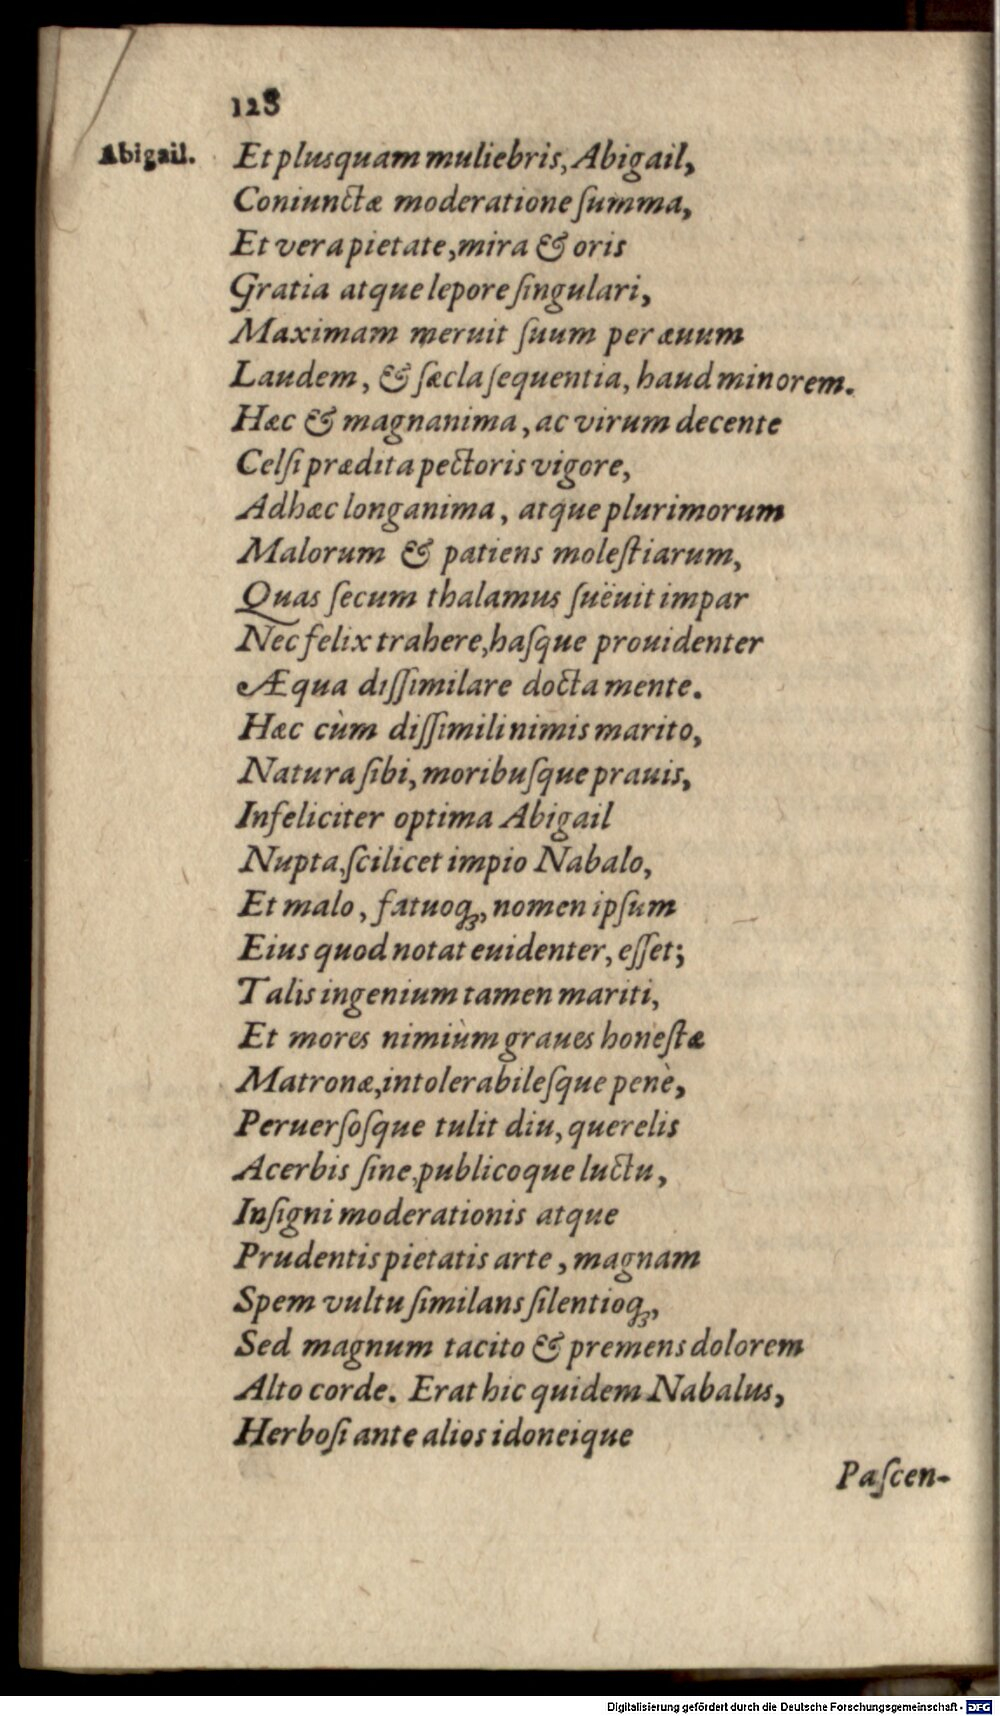 128
Abigail.
Et plusquam muliebris, Abigail,
Coniunctæ moderatione ſumma,
Et vera pietate, mira & oris
Gratia atque lepore ſingulari,
Maximam meruit ſuum per æuum
Laudem, & ſæcla ſequentia, haud minorem.
Hæc & magnanima, ac virum decente
Celſi prædita pectoris vigore,
Adhæc longanima, atque plurimorum
Malorum & patiens moleſtiarum,
Quas ſecum thalamus ſuëuit impar
Nec felix trahere, haſque prouidenter
Æqua diſſimilare docta mente.
Hæc cùm diſſimili nimis marito,
Natura ſibi, moribuſque prauis,
Infeliciter optima Abigail
Nupta, ſcilicet impio Nabalo,
Et malo, fatuoq;, nomen ipſum
Eius quod notat euidenter, eſſet;
Talis ingenium tamen mariti,
Et mores nimiùm graues honeſtæ
Matronæ, intolerabileſque penè,
Peruerſoſque tulit diu, querelis
Acerbis ſine, publicoque luctu,
Inſigni moderationis atque
Prudentis pietatis arte, magnam
Spem vultu ſimilans ſilentioq;,
Sed magnum tacito & premens dolorem
Alto corde. Erat hic quidem Nabalus,
Herboſi ante alios idoneique
Paſcen-
Digitalisierung gefördert durch die Deutsche Forschungsgemeinschaft - DFG